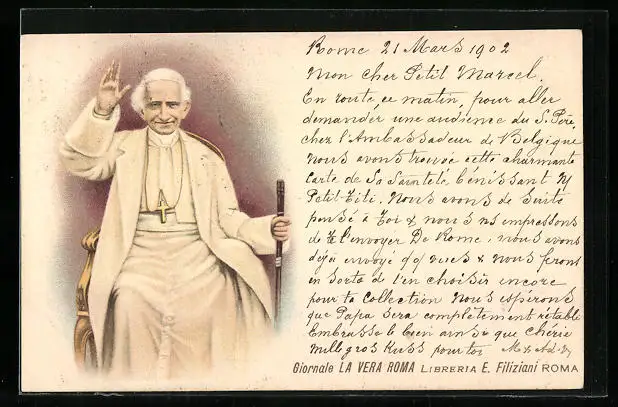 Rome 21 Mars 1902
Mon cher Petit Marcel.
En route, ce matin, pour aller
demander une audience du S. Père,
chez l'Ambassadeur de Belgique
nous avons trouvé cette charmante
carte de Sa Sainteté bénissant
Petit-Titi. Nous avons de suite
pensé à toi & nous ns empressons
de te l'envoyer De Rome, nous avons
déjà envoyé qq vues & nous ferons
en sorte de t'en choisir encore
pour ta collection Nous espérons
que Papa sera complètement rétabli
Embrasse le bien ainsi que chérie
Mille gros kuss pour toi
Giornale LA VERA ROMA LIBRERIA E. Filiziani ROMA